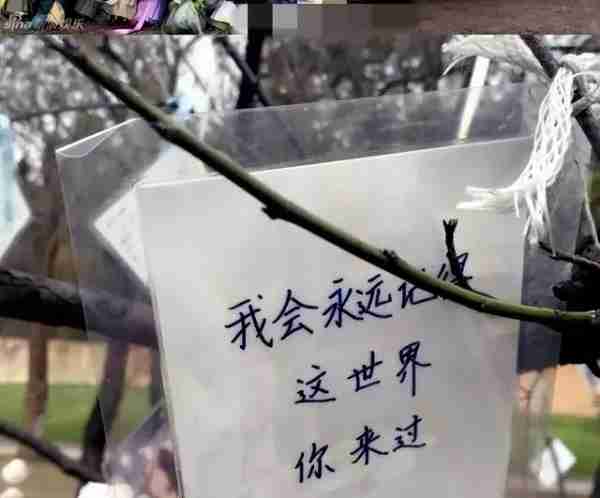 sina
娱乐
我会永远记得
这世界
你来过